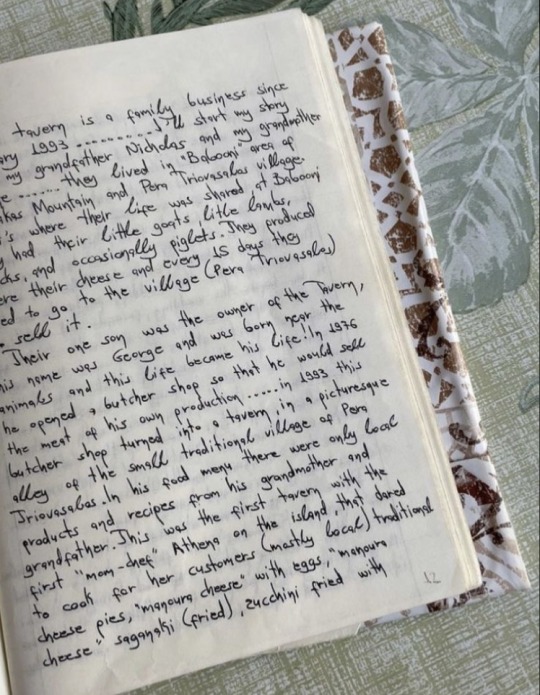 tavern is a family business since
ary 1993 ..........I'll start my story
my grandfather Nicholas and my grandmother
e ...... they lived in "Babooni" area of
akas Mountain and Pera Triovasalos village.
's where their life was shared at Babooni
y had their little goats litle lambs,
cks, and occasionally piglets. They produced
ere their cheese and every 15 days they
ed to go to the village (Pera Triovasalos)
sell it.
Their one son was the owner of the Tavern,
his name was George and was born near the
animals and this life became his life! In 1976
he opened a butcher shop so that he would sell
the meat of his own production .....in 1993 this
butcher shop turned into a tavern, in a picturesque
alley of the small traditional village of Pera
Triovasalos. In his food menu there were only local
products and recipes from his grandmother and
grandfather. This was the first tavern with the
first "mom-chef" Athena on the island, that dared
to cook for her customers (mostly local) traditional
cheese pies, "manoura cheese" with eggs, "manoura
cheese" saganaki (fried), zucchini fried with
12